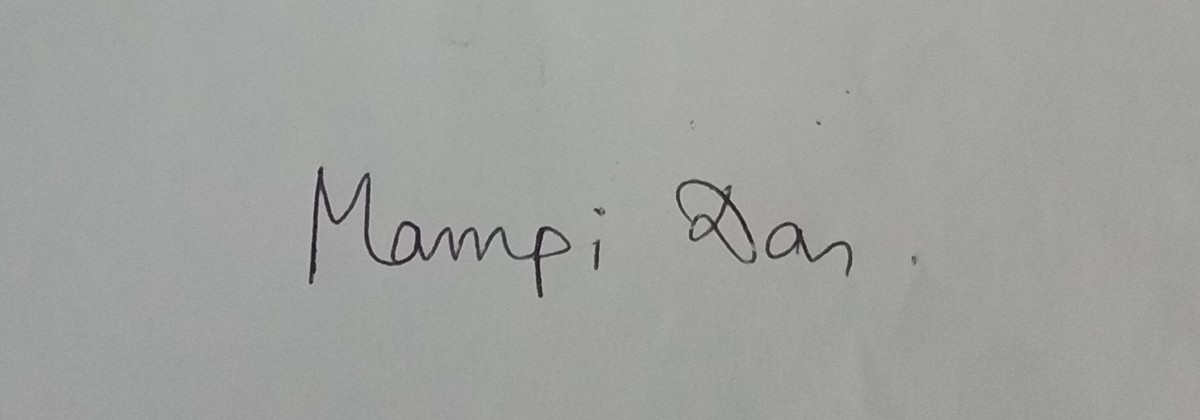 Mampi Das.